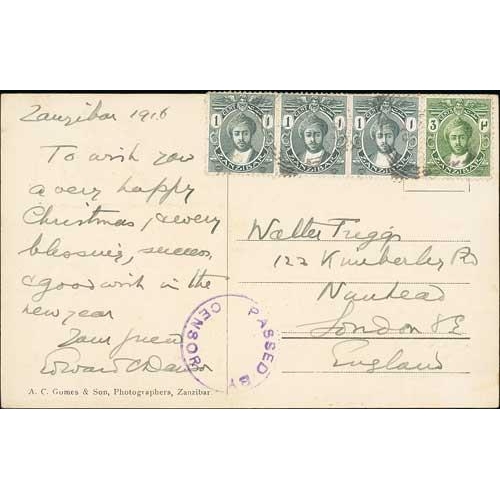 Zanzibar 1916
To wish you
a very happy
Christmas, & every
blessing, success
& good wish in the
new year
Your friend
Edward C Dawson
A. C. Gomes & Son, Photographers, Zanzibar
1 1
ZANZIBAR
1 1
ZANZIBAR
1 1
ZANZIBAR
3 ٣
ZANZIBAR
Walter Triggs
122 Kimberley Rd
Nunhead
London SE
England
PASSED BY
CENSOR